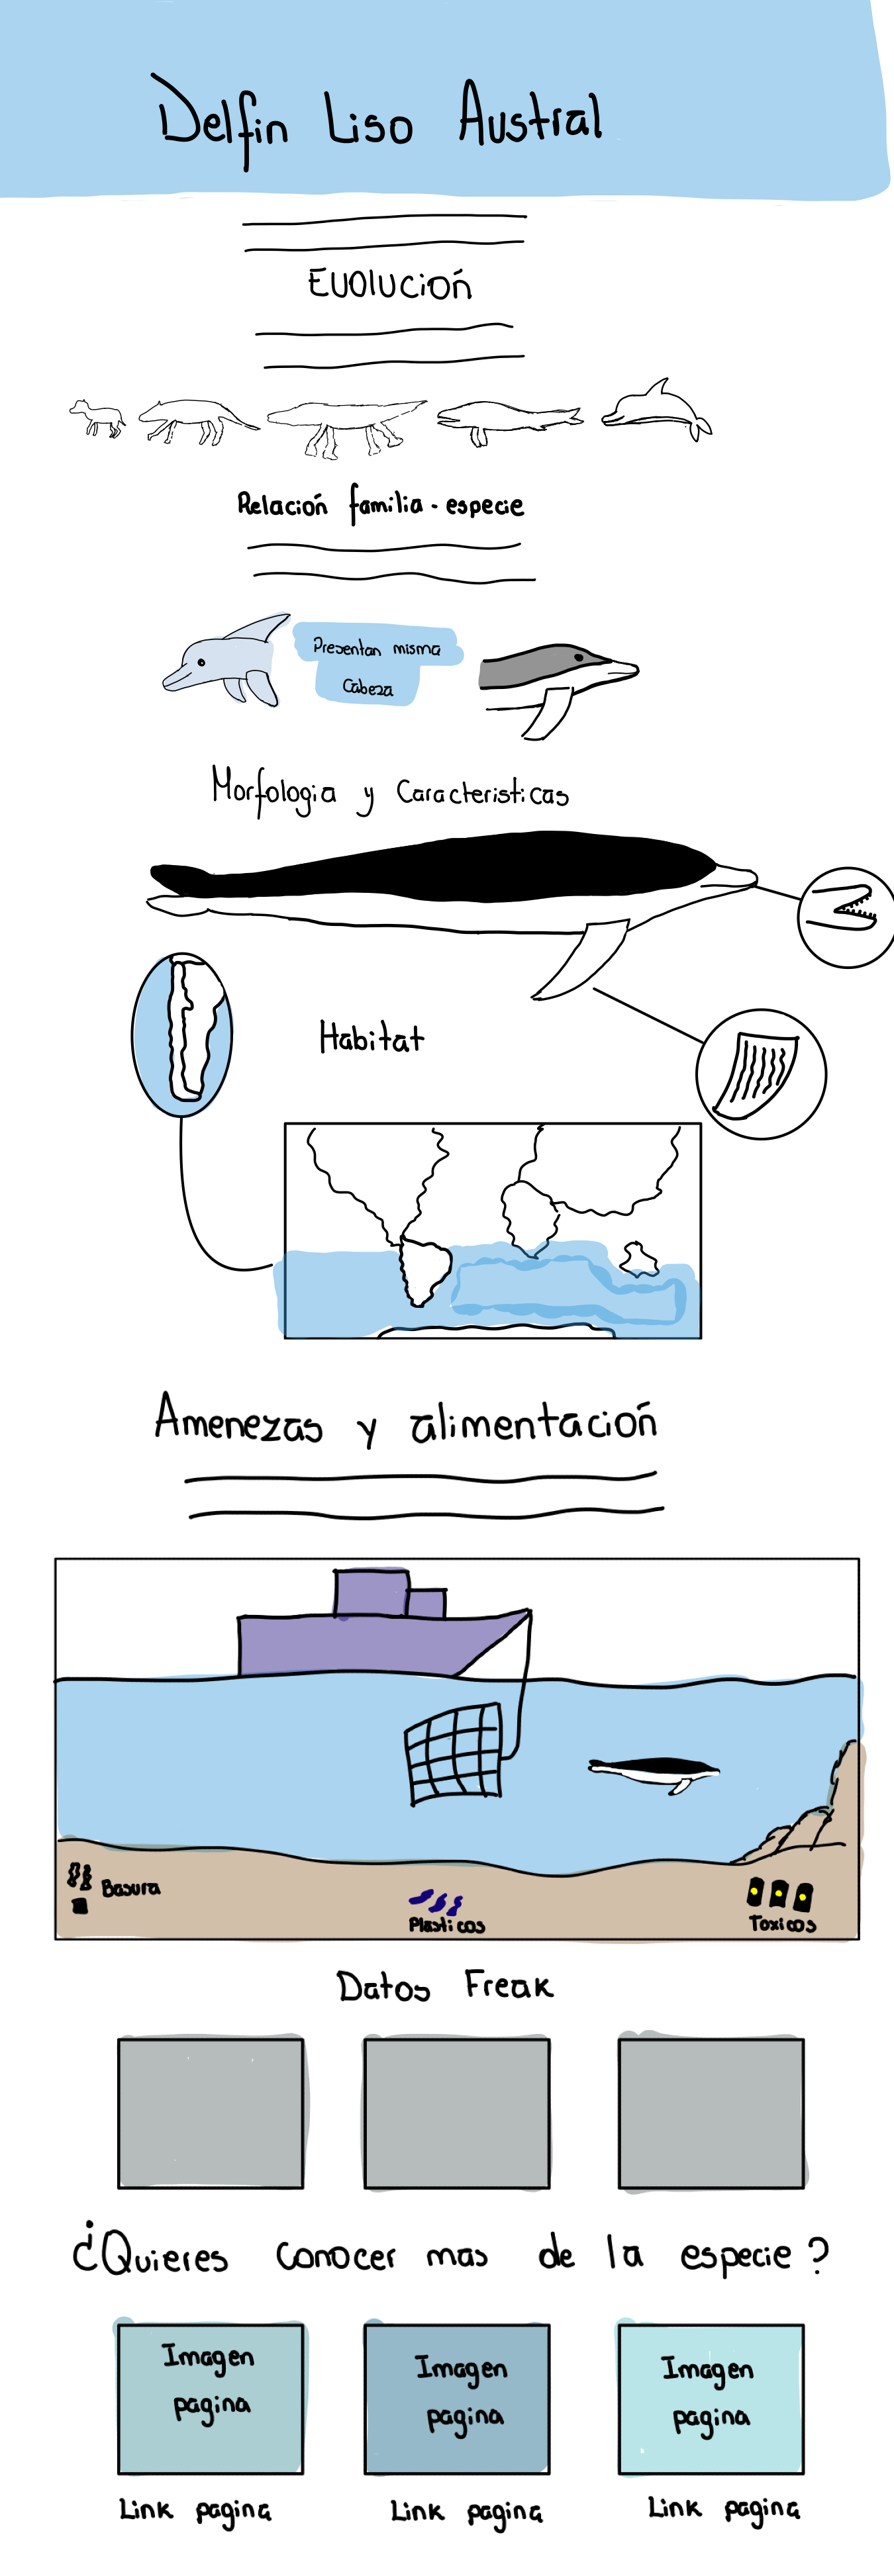 Delfin Liso Austral
Evolución
Relación familia - especie
Presentan misma
Cabeza
Morfologia y Caracteristicas
Habitat
Amenezas y alimentación
Basura
Plasticos
Toxicos
Datos Freak
¿Quieres conocer mas de la especie?
Imagen
pagina
Imagen
pagina
Imagen
pagina
Link pagina
Link pagina
Link pagina